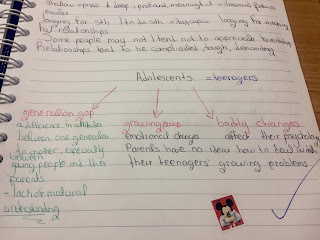 shallow profound deep, profound, meaningful
longing for sth | to do sth = longing for meaning
ful relationships
Some people may not | tend not to appreciate friendship
Relationships tend to be complicated, tough, demanding
Adolescents = teenagers
generation gap
a difference in attitudes
between one generation
to another, especially
between
young people and their
parents
= lack of mutual
understanding
growing pains
emotional changes
Parents have no idea how to deal with
their teenagers' growing problems
bodily changes
affect their psychology